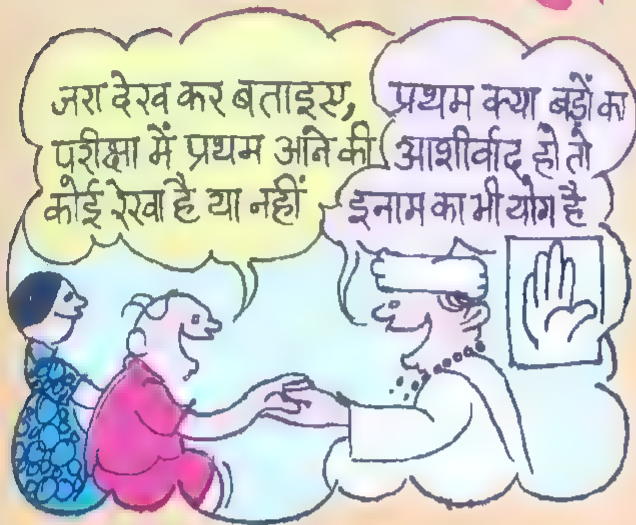 जरा देख कर बताइए,
परीक्षा में प्रथम आने की
कोई रेखा है या नहीं
प्रथम क्या बड़ों का
आशीर्वाद हो तो
इनाम का भी योग है